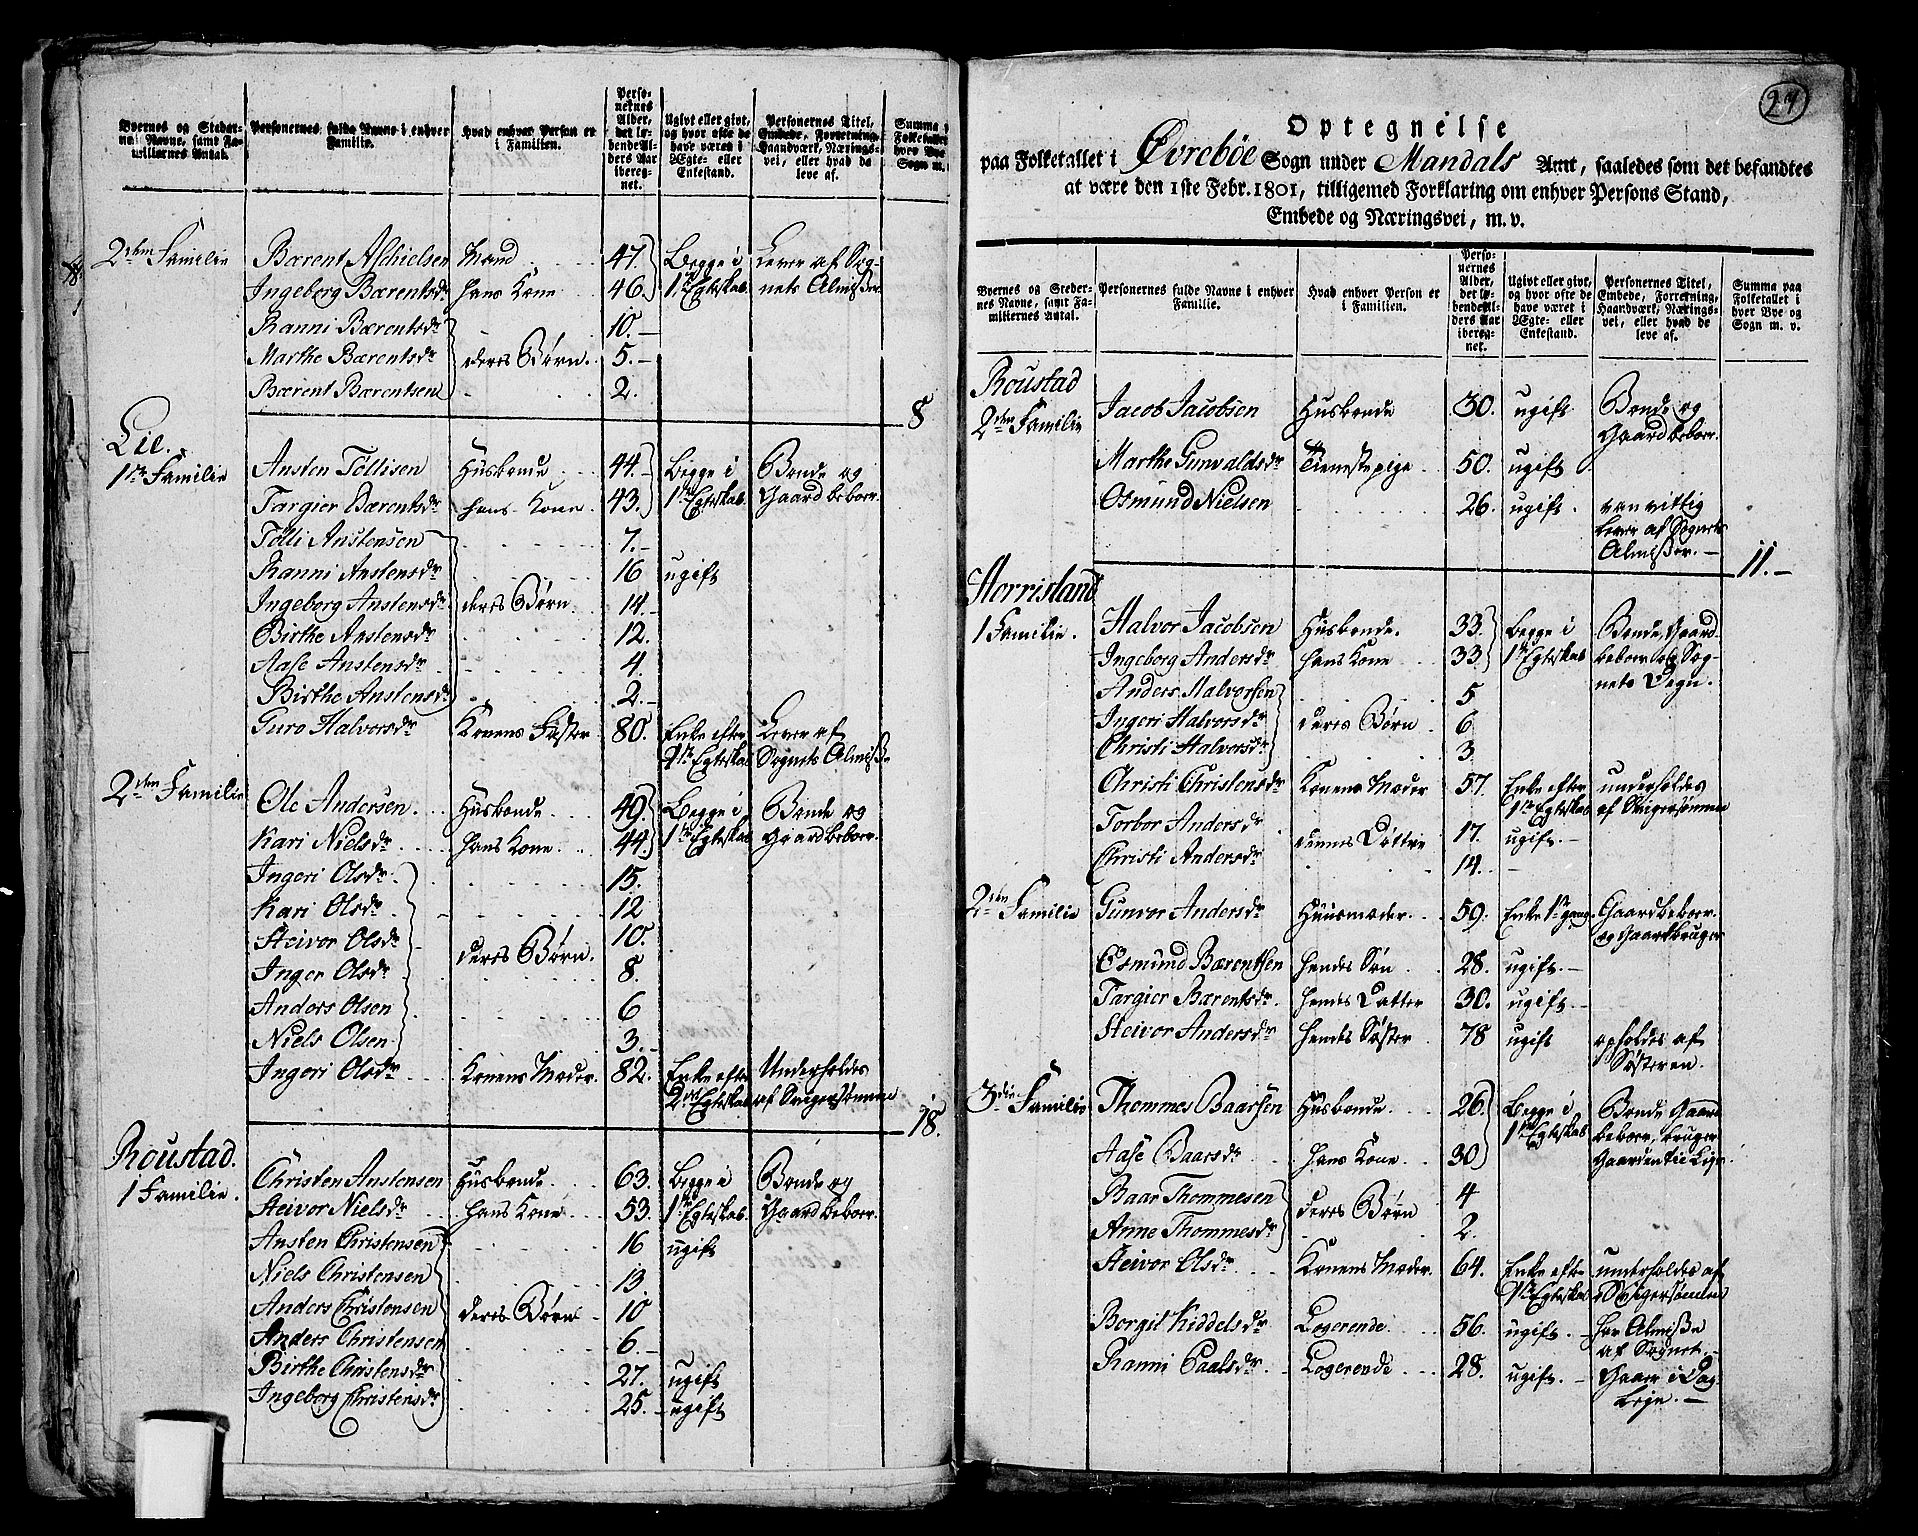 Byernes og Steder-
nes Navne, samt Fa-
milliernes Antal.
Personernes fulde Navne i enhver
Familie.
Hvad enhver Person er
i Familien.
Perso-
nernes
Alder,
det lø-
bende Al-
ders Aar
ibereg-
net.
Ugivt eller givt,
og hvor ofte de
have været i
Ægte- eller
Enkestand.
Personernes Titel,
Embede, Forretning,
Haandværk, Nærings-
vei, eller hvad de
leve af.
Summa
Folketallet
hver Bye
Sogn m.
2den Familie Bærent Aschielsen Mand 47 Begge i Lever af Sog-
Ingeborg Bærentsdr hans Kone 46. 1ste Egteskab nets Almisse
Ranni Bærentsdr 10.
Marthe Bærentsdr deres Børn. 5.
Bærent Bærentsen 2.
8
Lie.
1ste Familie Ansten Töllisen Husbonde 44. Begge i Bonde og
Targier Bærentsdr hans Kone 43. 1ste Egteskab Gaardbeboer.
Tölli Anstensen 7.
Ranni Anstensdr 16 ugift
Ingeborg Anstensdr deres Børn 14.
Birthe Anstensdr 12.
Aase Anstensdr 4.
Birthe Anstensdr 2.
Guro Halvorsdr Konens Faster 80. Enke efter Lever af
1ste Egteskab Sognets Almisse
2den Familie Ole Andersen Husbonde 49. Begge i Bonde og
Kari Nielsdr hans Kone 44. 1ste Egteskab Gaardbeboer.
Ingeri Olsdr 15.
Kari Olsdr 12
Steivor Olsdr deres Børn. 10.
Inger Olsdr 8.
Anders Olsen 6
Niels Olsen 3.
Ingeri Olsdr Konens Moder. 82. Enke efter Underholdes
2det Egteskab af Svigersønnen
18.
Roustad.
1 Familie. Christen Anstensen Husbonde 63. Begge i Bonde og
Steivor Nielsdr hans Kone 53. 1ste Egteskab. Gaardbeboer.
Ansten Christensen 16 ugift
Niels Christensen 13.
Anders Christensen deres Børn 10
Anders Christensen 6.
Birthe Christensdr 27. ugift
Ingeborg Christensdr 25. ugift
27
Optegnelse
paa Folketallet i Øvreböe Sogn under Mandals Amt, saaledes som det befandtes
at være den 1ste Febr. 1801, tilligemed Forklaring om enhver Persons Stand,
Embede og Næringsvei, m. v.
Byernes og Steder-
nes Navne, samt Fa-
milliernes Antal.
Personernes fulde Navne i enhver
Familie.
Hvad enhver Person er
i Familien.
Perso-
nernes
Alder,
det lø-
bende Al-
ders Aar
ibereg-
net.
Ugivt eller givt,
og hvor ofte de
have været i
Ægte- eller
Enkestand.
Personernes Titel,
Embede, Forretning,
Haandværk, Nærings-
vei, eller hvad de
leve af.
Summa paa
Folketallet i
hver Bye og
Sogn m. v.
Roustad
2den Familie Jacob Jacobsen Husbonde 30. ugift Bonde og
Gaardbeboer.
Marthe Gunvaldsdr Tienestepige 50. ugift
Osmund Nielsen 26. ugift. vanvittig
lever af Sognets
Almisse.
11.
Storrisland
1 Familie. Halvor Jacobsen Husbonde. 33. Begge i Bonde, Gaard
Ingeborg Andersdr hans Kone 33. 1ste Egteskab beboer og Sog-
nets Degn.
Anders Halvorsen 5
Ingeri Halvorsdr deres Børn 6
Christi Halvorsdr 3
Christi Christensdr Konens Moder 57. Enke efter underholdes
1ste Egteskab af Svigersønnen
Torbor Andersdr dennes Döttre 17. ugift.
Christi Andersdr 14.
2den Familie Gunvor Andersdr Huusmoder 59. Enke 1ste gang Gaardbeboer
og Gaardbruger
Osmund Bærentsen hendes Søn 28. ugift.
Targier Bærentsdr. hendes Datter 30. ugift.
Steivor Andersdr hendes Søster 78 ugift opholdes af
Søsteren.
3die Familie Thommes Baarsen Husbonde 26. Begge i Bonde Gaard
1ste Egteskab beboer, bruger
Aase Baarsdr hans Kone 30 Gaarden til Leje.
Baar Thommesen deres Børn 4
Anne Thommesdr 2.
Steivor Olsdr Konens Moder. 64. Enke efter underholdes af
1ste Egteskab Svigersønnen
Borgil Kiddelsdr Logerende 56. ugift. har Almisse
af Sognet.
Ranni Paalsdr Logerende 28. ugift. Gaaer i Dag-
Leje.